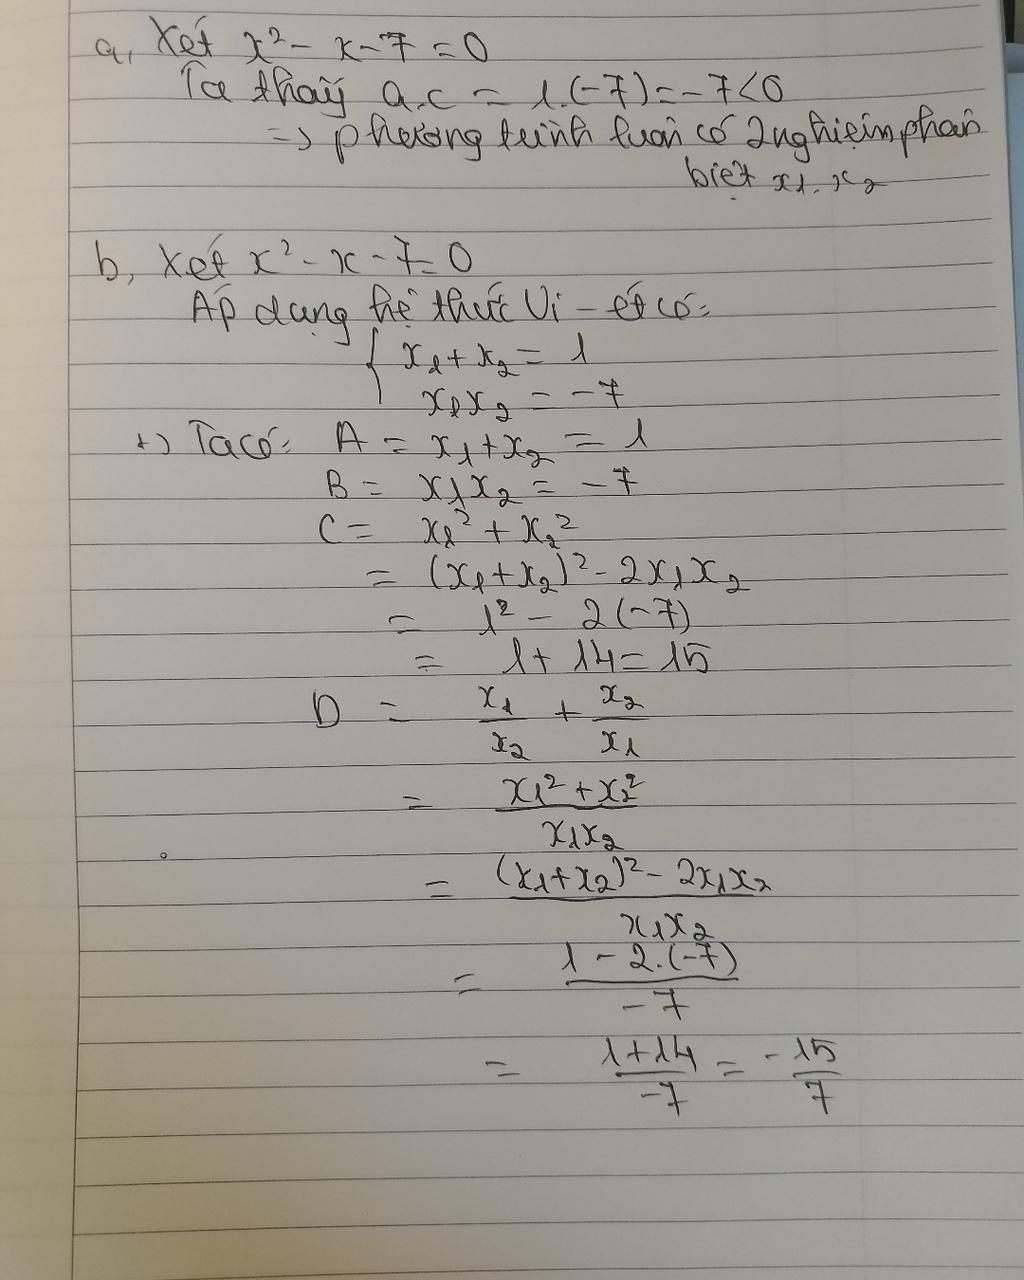 a, Xét x² - x - 7 = 0
Ta thấy a.c = 1.(-7) = -7 < 0
=> phương trình luôn có 2 nghiệm phân
biệt x₁, x₂
b, Xét x² - x - 7 = 0
Áp dụng hệ thức Vi-ét có:
{ x₁ + x₂ = 1
x₁x₂ = -7
+) Ta có: A = x₁ + x₂ = 1
B = x₁x₂ = -7
C = x₁² + x₂²
= (x₁ + x₂)² - 2x₁x₂
= 1² - 2(-7)
= 1 + 14 = 15
D = x₁/x₂ + x₂/x₁
= (x₁² + x₂²)/(x₁x₂)
= ((x₁ + x₂)² - 2x₁x₂)/(x₁x₂)
= (1 - 2.(-7))/(-7)
= (1 + 14)/(-7) = -15/7